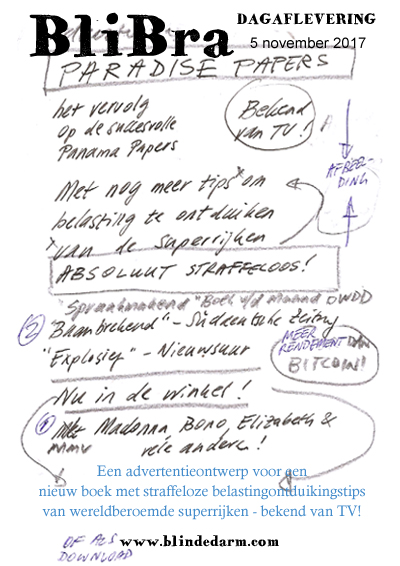 BliBra
DAGAFLEVERING
5 november 2017
PARADISE PAPERS
het vervolg
op de succesvolle
Panama Papers
Bekend
van TV!
AFBEEL-
DING
Met nog meer tips om
belasting te ontduiken
van de superrijken
ABSOLUUT STRAFFELOOS!
Spraakmakend "Boek v/d Maand DWDD
"Baanbrekend" - Süddeutsche Zeitung
"Explosief" - Nieuwsuur
MEER
RENDEMENT DAN
BITCOIN!
Nu in de winkel!
Met Madonna, Bono, Elizabeth &
vele anderen!
MMV
Een advertentieontwerp voor een
nieuw boek met straffeloze belastingontduikingstips
van wereldberoemde superrijken - bekend van TV!
OF ALS
DOWNLOAD
www.blindedarm.com